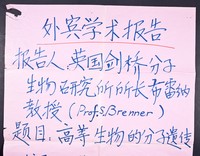 外宾学术报告
报告人英国剑桥分子
生物研究所所长布雷纳
教授(Prof.S.Brenner)
题目:高等生物的分子遗传